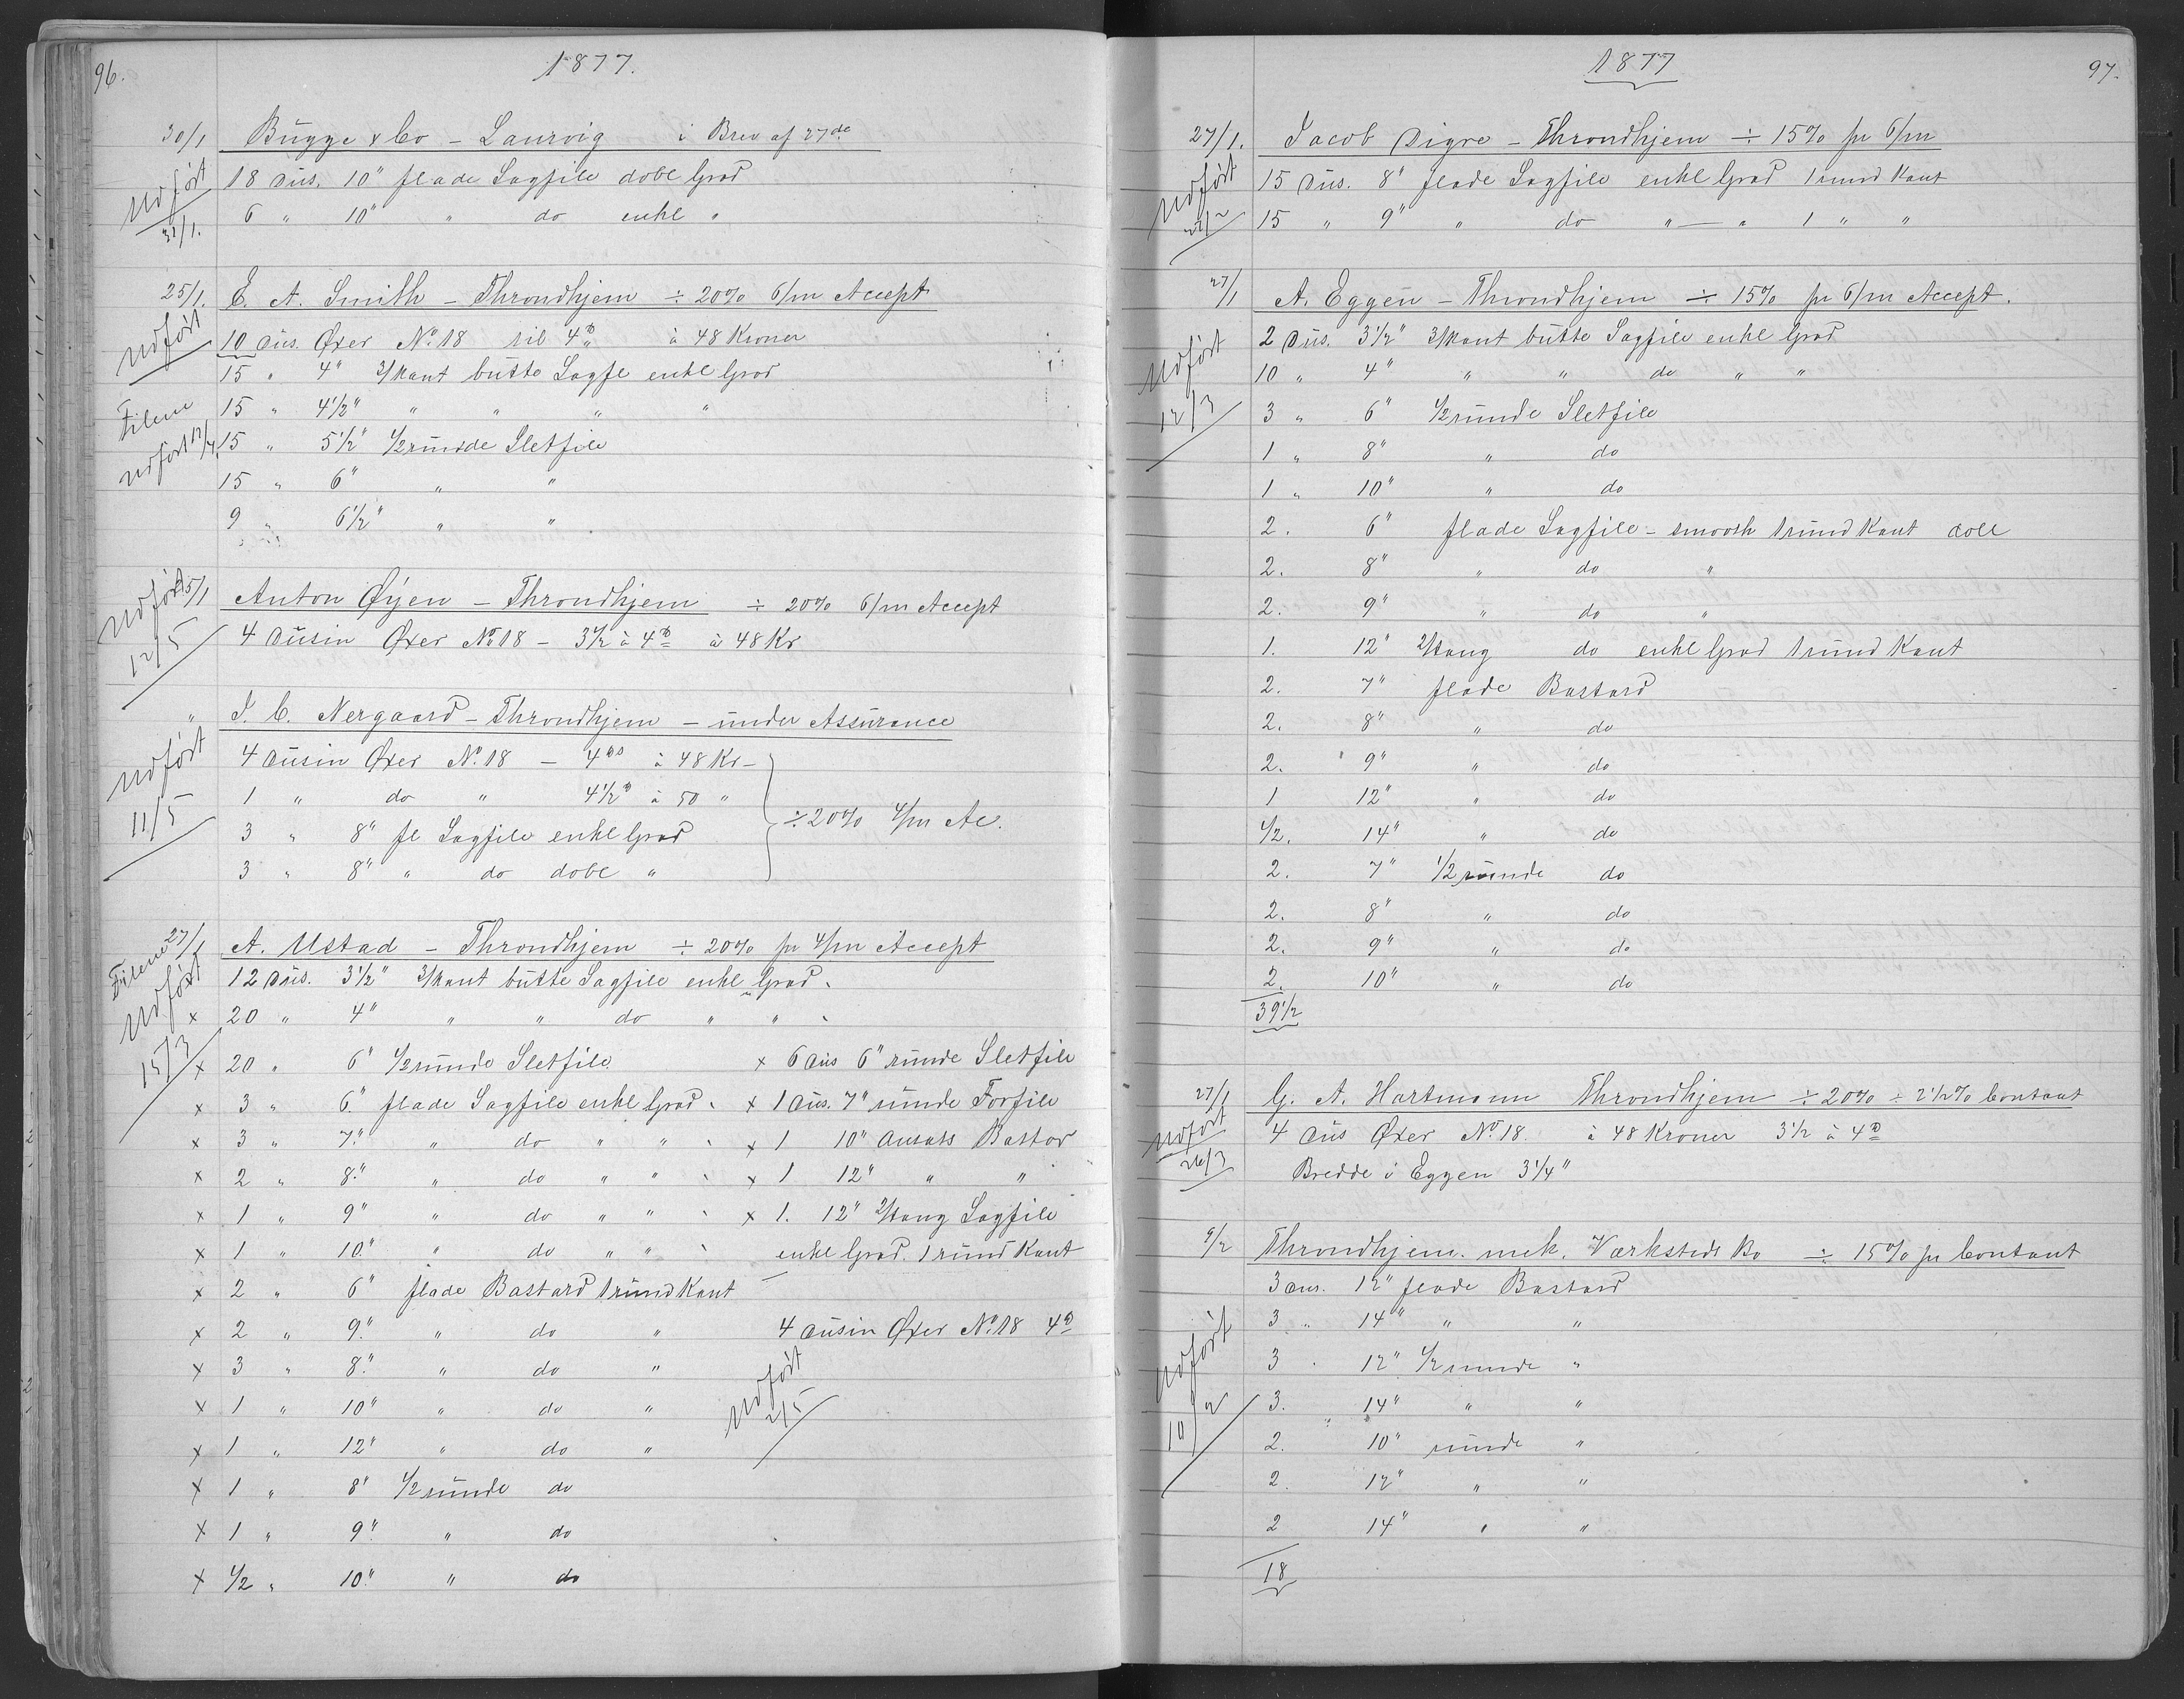 96.
1877.
30/1 Bugge & Co – Laurvig i Brev af 27de
Udført 31/1.
18 Dus. 10" flade Sagfile dobl Grad
6 " 10" " do enkl "
25/1. E. A. Smith – Throndhjem ÷ 20% 6/m Accept
Udført
10 Dus. Øxer No 18 til 4 ℔ à 48 Kroner
15 " 4" 3/kant butte Sagfe enkl Grad
Filene udført 12/4
15 " 4½" " " " "
15 " 5½" ½runde Sletfile
15 " 6" " "
9 " 6½" " "
25/1 Anton Øyen – Throndhjem ÷ 20% 6/m Accept
Udført 12/5
4 Dusin Øxer No 18 – 3½ à 4 ℔ à 48 Kr
" I. C. Nergaard – Throndhjem – under Assurance
Udført 11/5
4 Dusin Øxer No. 18 – 4 ℔s à 48 Kr –
1 " do " 4½ ℔ à 50 "
3 " 8" fl Sagfile enkl Grad
3 " 8" " do dobl "
÷ 20% 4/m Ac.
27/1 A. Ustad – Throndhjem ÷ 20% pr 4/m Accept
Filene Udført 15/3
12 Dus. 3½" 3/kant butte Sagfile enkl Grad
x 20 " 4" " " do " "
x 20 " 6" ½runde Sletfile x 6 Dus 6" runde Sletfile
x 3 " 6" flade Sagfile enkl Grad x 1 Dus. 7" runde Forfile
x 3 " 7" " do " " x 1 10" Ansats Bastar
x 2 " 8" " do " " x 1 12" " "
x 1 " 9" " do " " x 1. 12" 2/tang Sagfile
x 1 " 10" " do " " enkl Grad. 1 rund Kant
x 2 " 6" flade Bastard 1 rund Kant
x 2 " 9" " do " 4 Dusin Øxer No. 18 4 ℔
x 3 " 8" " do "
Udført 2/5
x 1 " 10" " do "
x 1 " 12" " do "
x 1 " 8" ½runde do
x 1 " 9" " do
x ½ " 10" " do
1877
97.
27/1. Jacob Digre – Throndhjem ÷ 15% pr 6/m
Udført 22/2
15 Dus. 8" flade Sagfile enkl Grad 1 rund Kant
15 " 9" " do " – " 1 " "
27/1 A. Eggen – Throndhjem ÷ 15% pr 6/m Accept.
Udført 12/3
2 Dus. 3½" 3/kant butte Sagfile enkl Grad
10 " 4" " " do " "
3 " 6" ½runde Sletfile
1 " 8" " do
1 " 10" " do
2. 6" flade Sagfile – smooth 1 rund Kant doll
2. 8" " do "
2. 9" " do "
1. 12" 2/tang do enkl Grad 1 rund Kant
2. 7" flade Bastard
2. 8" " do
2. " 9" " do
1 12" " do
½. 14" " do
2. 7" ½ runde do
2. 8" " do
2. 9" " do
2. 10" " do
39½
27/1 G. A. Hartmann Throndhjem ÷ 20% ÷ 2½% Contant
Udført 26/3
4 Dus Øxer No. 18. à 48 Kroner 3½ à 4 ℔
Bredde i Eggen 3¼"
6/2 Throndhjem. mek. Værksteds Bo ÷ 15% pr Contant
3 Dus. 12" flade Bastard
Udført 10/2
3 " 14" " "
3 . 12" ½ runde "
3. 14" " "
2. 10" runde "
2. 12" " "
2 14" " "
18